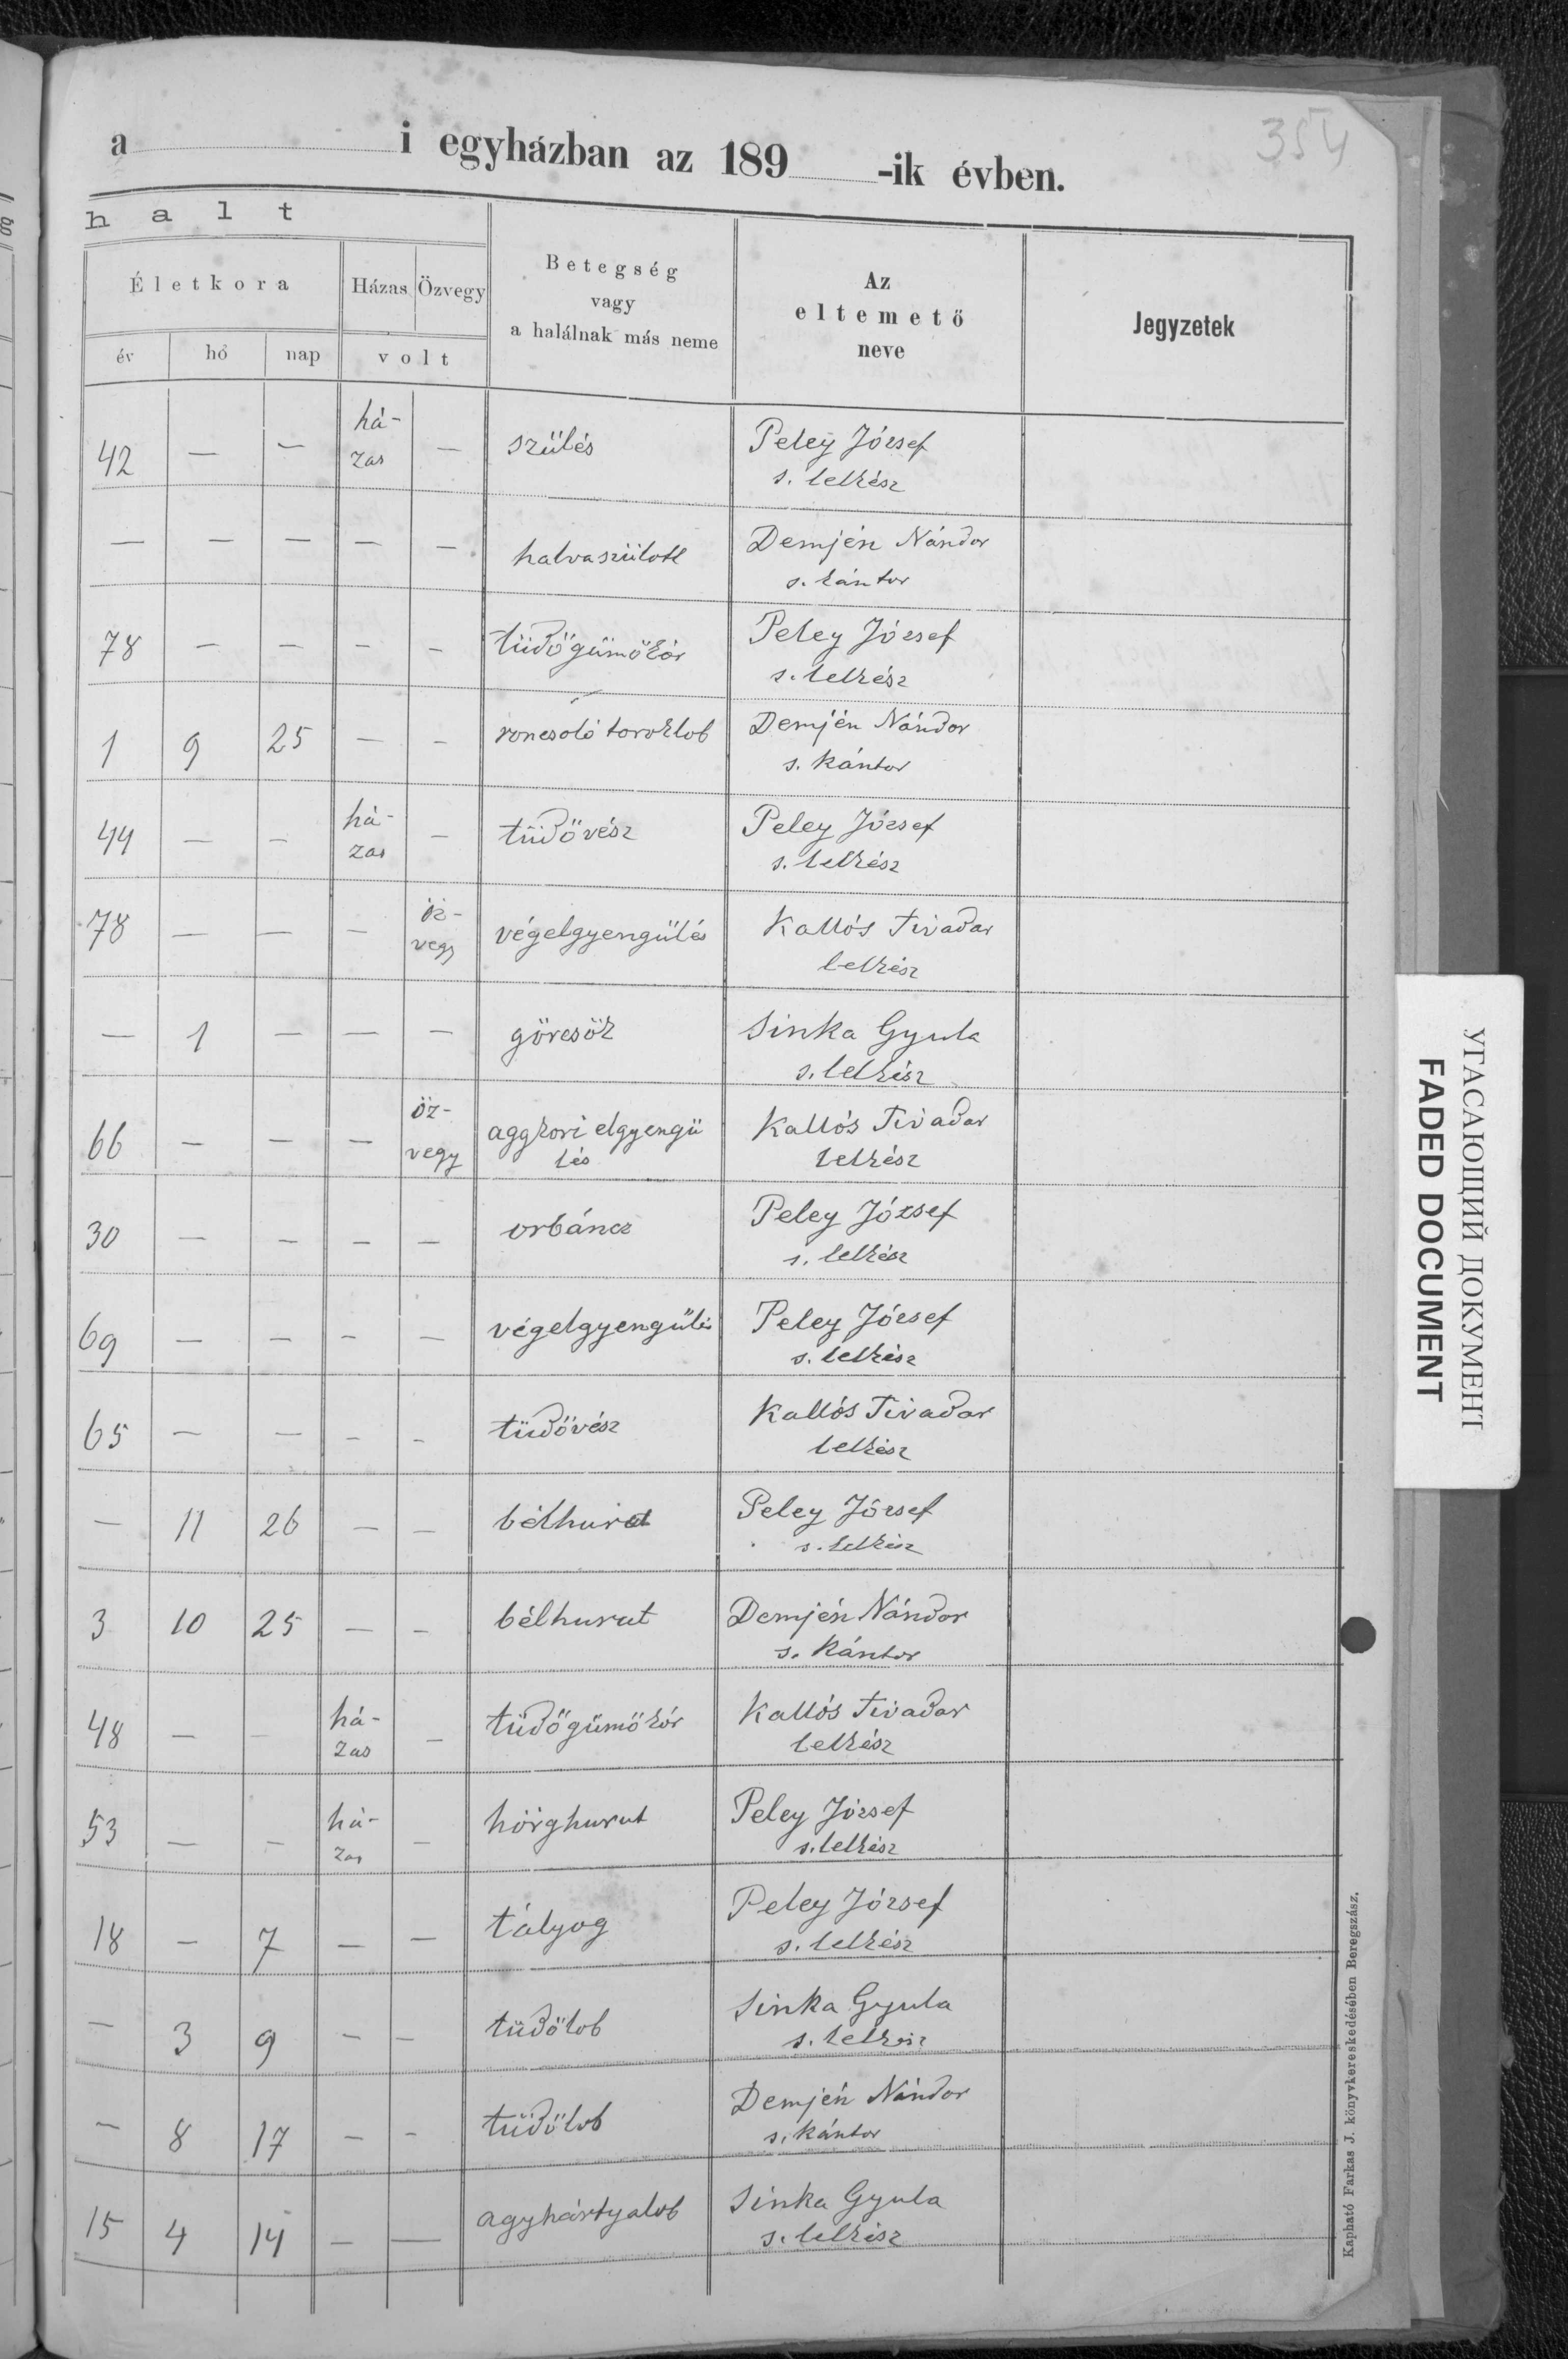 354
a i egyházban az 189 -ik évben.
halt
Életkora
Házas
Özvegy
Betegség
vagy
a halálnak más neme
Az
eltemető
neve
Jegyzetek
év hó nap volt
há-
42 — — zas — szülés Peley József
s. lelkész
— — — — — halvaszülött Demjén Nándor
s. kántor
78 — — — — tüdőgümőkór Peley József
s. lelkész
1 9 25 — — roncsoló toroklob Demjén Nándor
s. kántor
há-
44 — — zas — tüdővész Peley József
s. lelkész
öz-
78 — — — vegy végelgyengülés Kallós Tivadar
lelkész
— 1 — — — görcsök Sinka Gyula
s. lelkész
öz-
66 — — — vegy aggkori elgyengü Kallós Tivadar
lés lelkész
30 — — — — orbáncz Peley József
s. lelkész
69 — — — — végelgyengülés Peley József
s. lelkész
65 — — — — tüdővész Kallós Tivadar
lelkész
— 11 26 — — bélhurut Peley József
s. lelkész
3 10 25 — — bélhurut Demjén Nándor
s. kántor
há-
48 — — zas — tüdőgümőkór Kallós Tivadar
lelkész
há-
53 — — zas — hörghurut Peley József
s. lelkész
18 — 7 — — tályog Peley József
s. lelkész
— 3 9 — — tüdőlob Sinka Gyula
s. lelkész
— 8 17 — — tüdőlob Demjén Nándor
s. kántor
15 4 14 — — agyhártyalob Sinka Gyula
s. lelkész
Kapható Farkas J. könyvkereskedésében Beregszász.
УГАСАЮЩИЙ ДОКУМЕНТ
FADED DOCUMENT